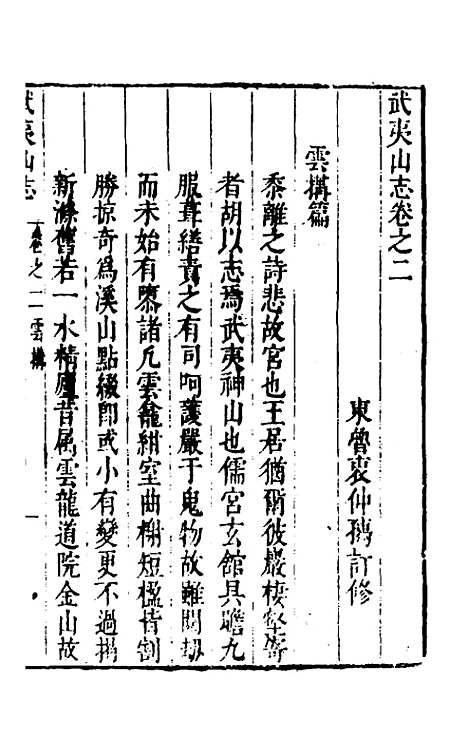 武夷山志卷之二
東魯衷仲孺訂修
雲構篇
黍離之詩悲故宮也王居猶爾彼巖棲壑寄
者胡以志焉武夷神山也儒宮玄館具瞻九
服葺繕責之有司呵護嚴于鬼物故雖閱劫
而未始有隳諸凡雲龕紺室曲榭短楹皆割
勝掠奇爲溪山點綴即或小有變更不過搨
新滌舊若一水精廬昔属雲龍道院金山故
武夷山志
卷之二雲構
一